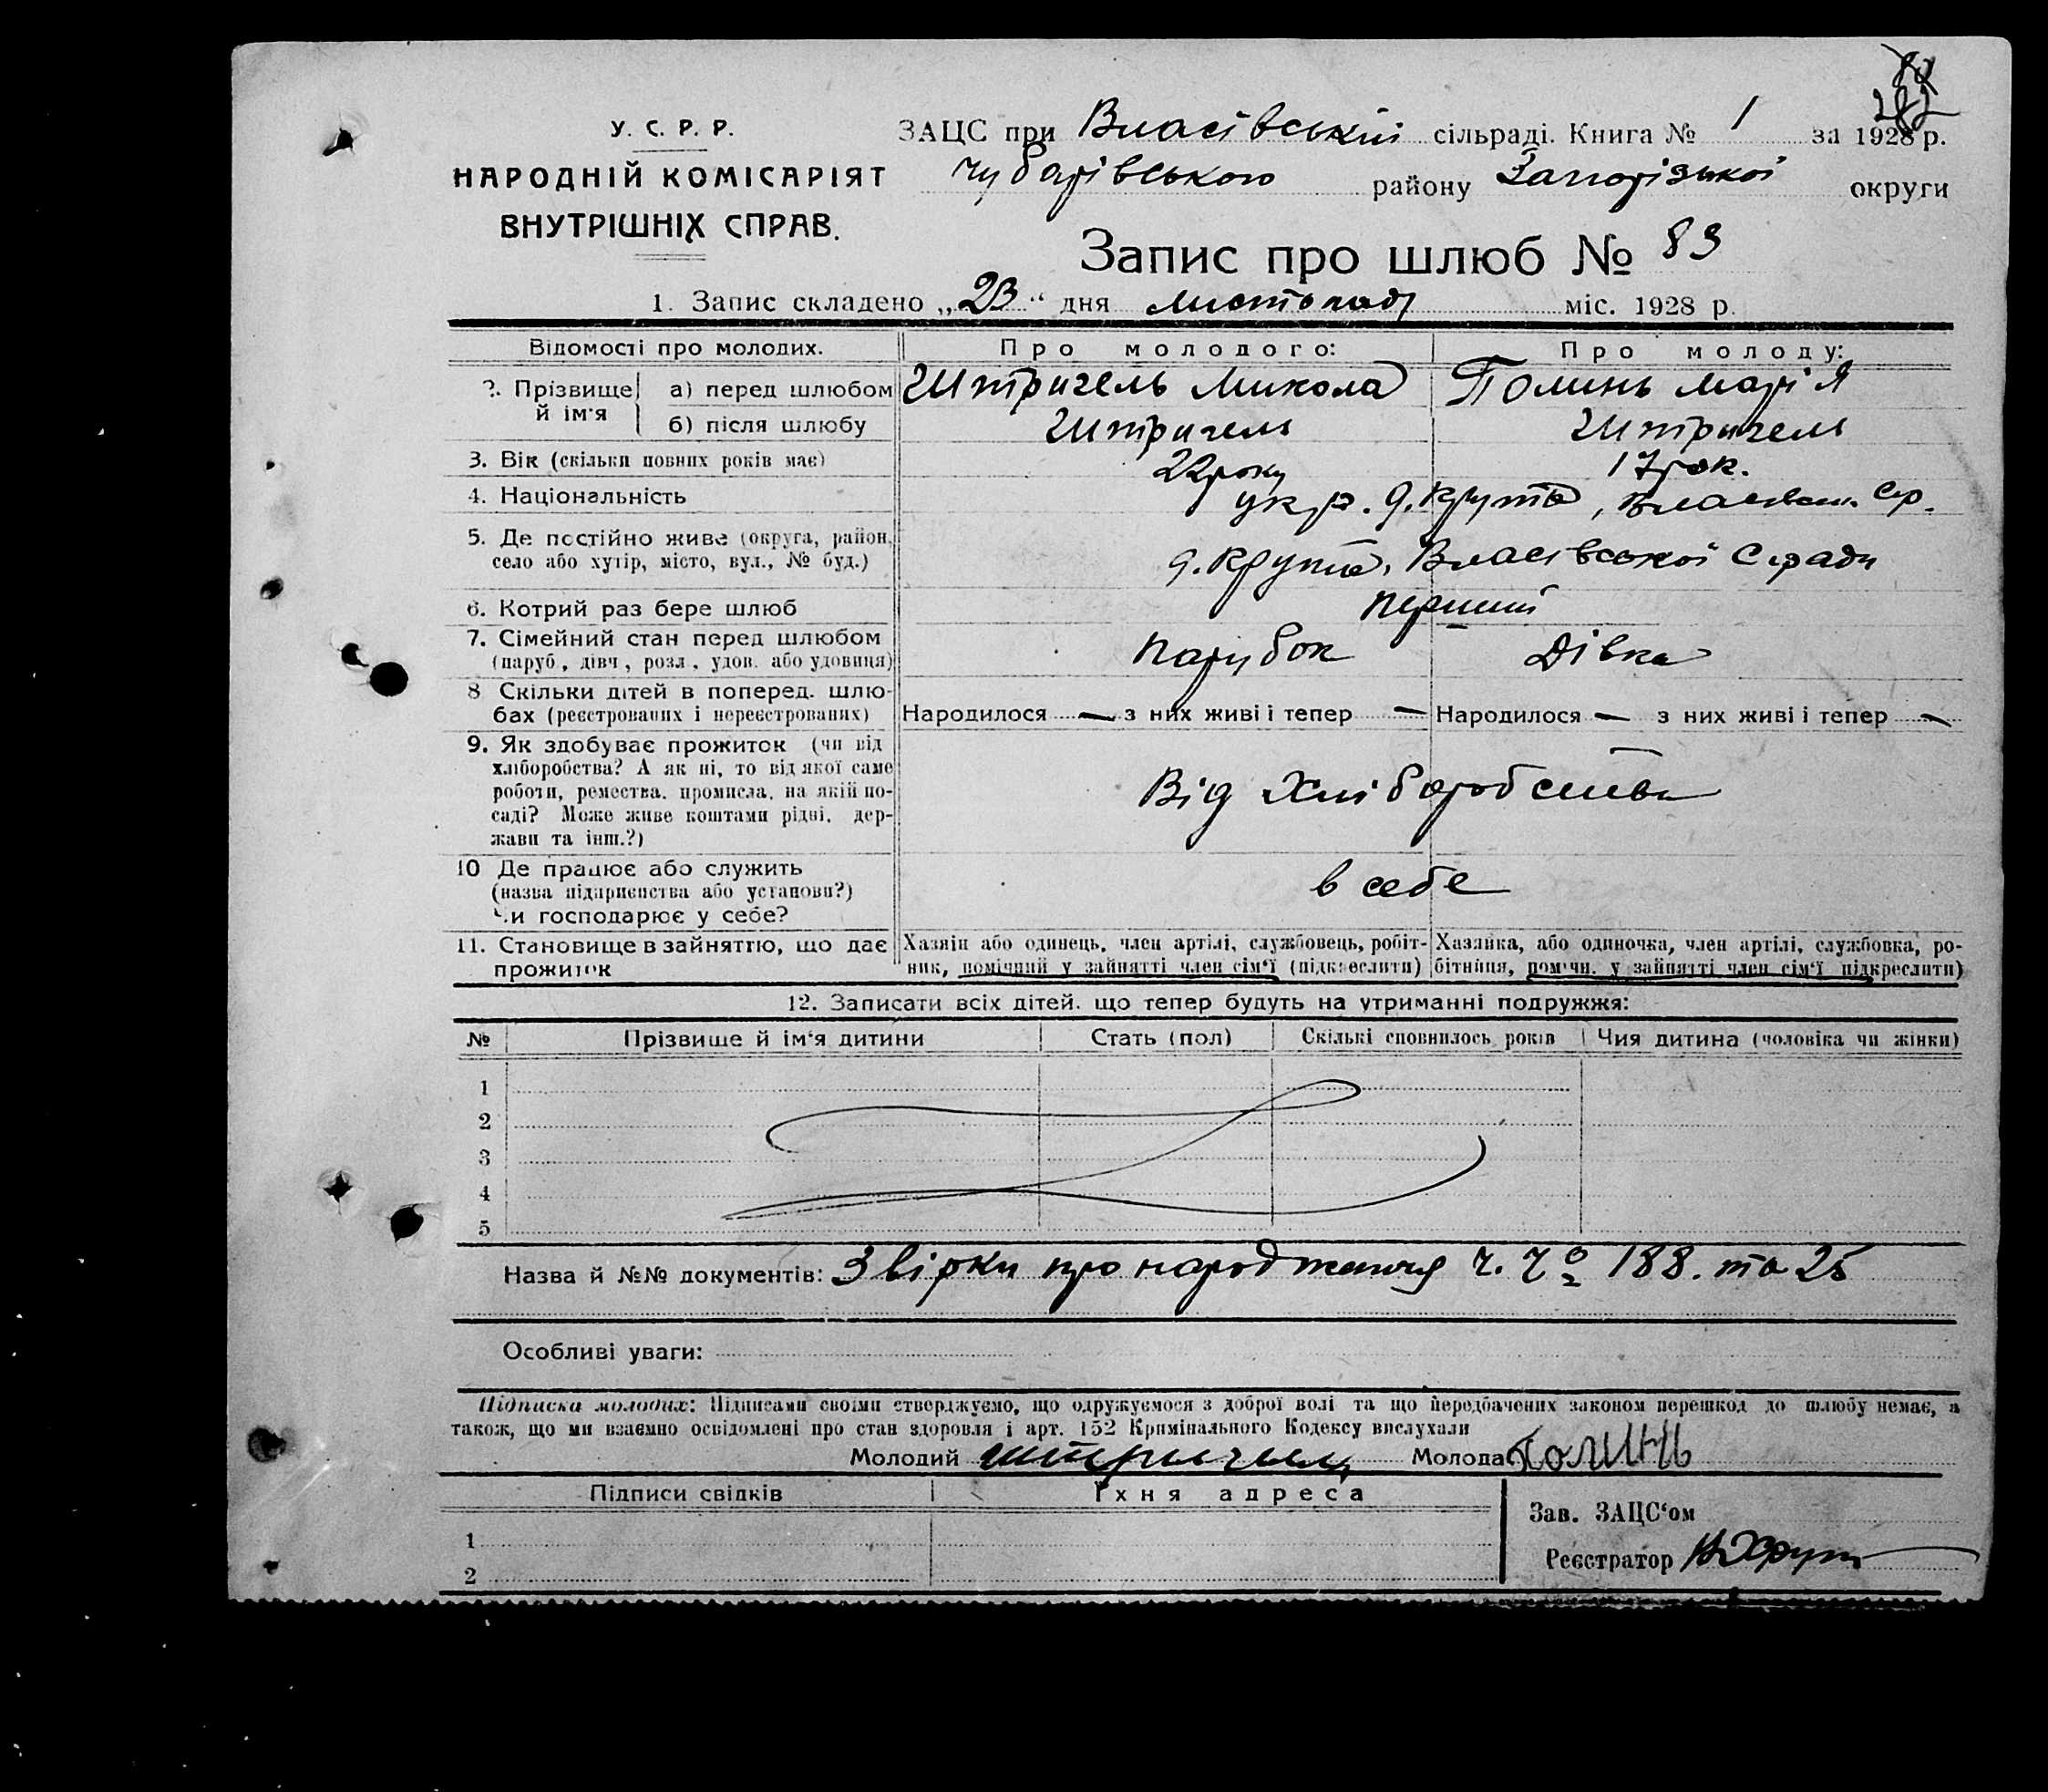 282
У. С. Р. Р.
НАРОДНІЙ КОМІСАРІЯТ
ВНУТРІШНІХ СПРАВ.
ЗАЦС при Власівській сільраді. Книга № 1 за 1928 р.
Чубарівського району Запорізької округи
Запис про шлюб № 83
1. Запис складено „23“ дня листопада міс. 1928 р.
Відомості про молодих.
Про молодого:
Про молоду:
2. Прізвище й ім'я
а) перед шлюбом Штригель Микола Полинь Марія
б) після шлюбу Штригель Штригель
3. Вік (скільки повних років має) 22 року 17 рок.
4. Національність укр. д. Крута, Власівськ. Ср.
5. Де постійно живе (округа, район,
село або хутір, місто, вул., № буд.) д. Крута, Власівської С ради
6. Котрий раз бере шлюб перший
7. Сімейний стан перед шлюбом
(паруб., дівч., розл., удов. або удовиця) парубок Дівка
8. Скільки дітей в поперед. шлю-
бах (реєстрованих і нереєстрованих) Народилося — з них живі і тепер — Народилося — з них живі і тепер —
9. Як здобуває прожиток (чи від
хліборобства? А як ні, то від якої саме
роботи, ремества, промисла, на якій по-
саді? Може живе коштами рідні, дер-
жави та інш.?)
Від Хліборобства
10. Де працює або служить
(назва підприємства або установи?)
Чи господарює у себе?
в себе
11. Становище в зайняттю, що дає
прожиток
Хазяїн або одинець, член артілі, службовець, робіт-
ник, помічний у зайнятті член сім'ї (підкреслити)
Хазяйка, або одиночка, член артілі, службовка, ро-
бітниця, помічн. у зайнятті член сім'ї підкреслити)
12. Записати всіх дітей, що тепер будуть на утриманні подружжя:
№ Прізвище й ім'я дитини Стать (пол) Скількі сповнилось років Чия дитина (чоловіка чи жінки)
1
2
3
4
5
Назва й №№ документів: Звірки про народження ч. 188. та 25
Особливі уваги:
Підписка молодих: Підписами своїми стверджуємо, що одружуємося з доброї волі та що передбачених законом перешкод до шлюбу немає, а
також, що ми взаємно освідомлені про стан здоровля і арт. 152 Кримінального Кодексу вислухали
Молодий Штригель Молода Полинь
Підписи свідків Їхня адреса
1
2
Зав. ЗАЦС'ом
Реєстратор